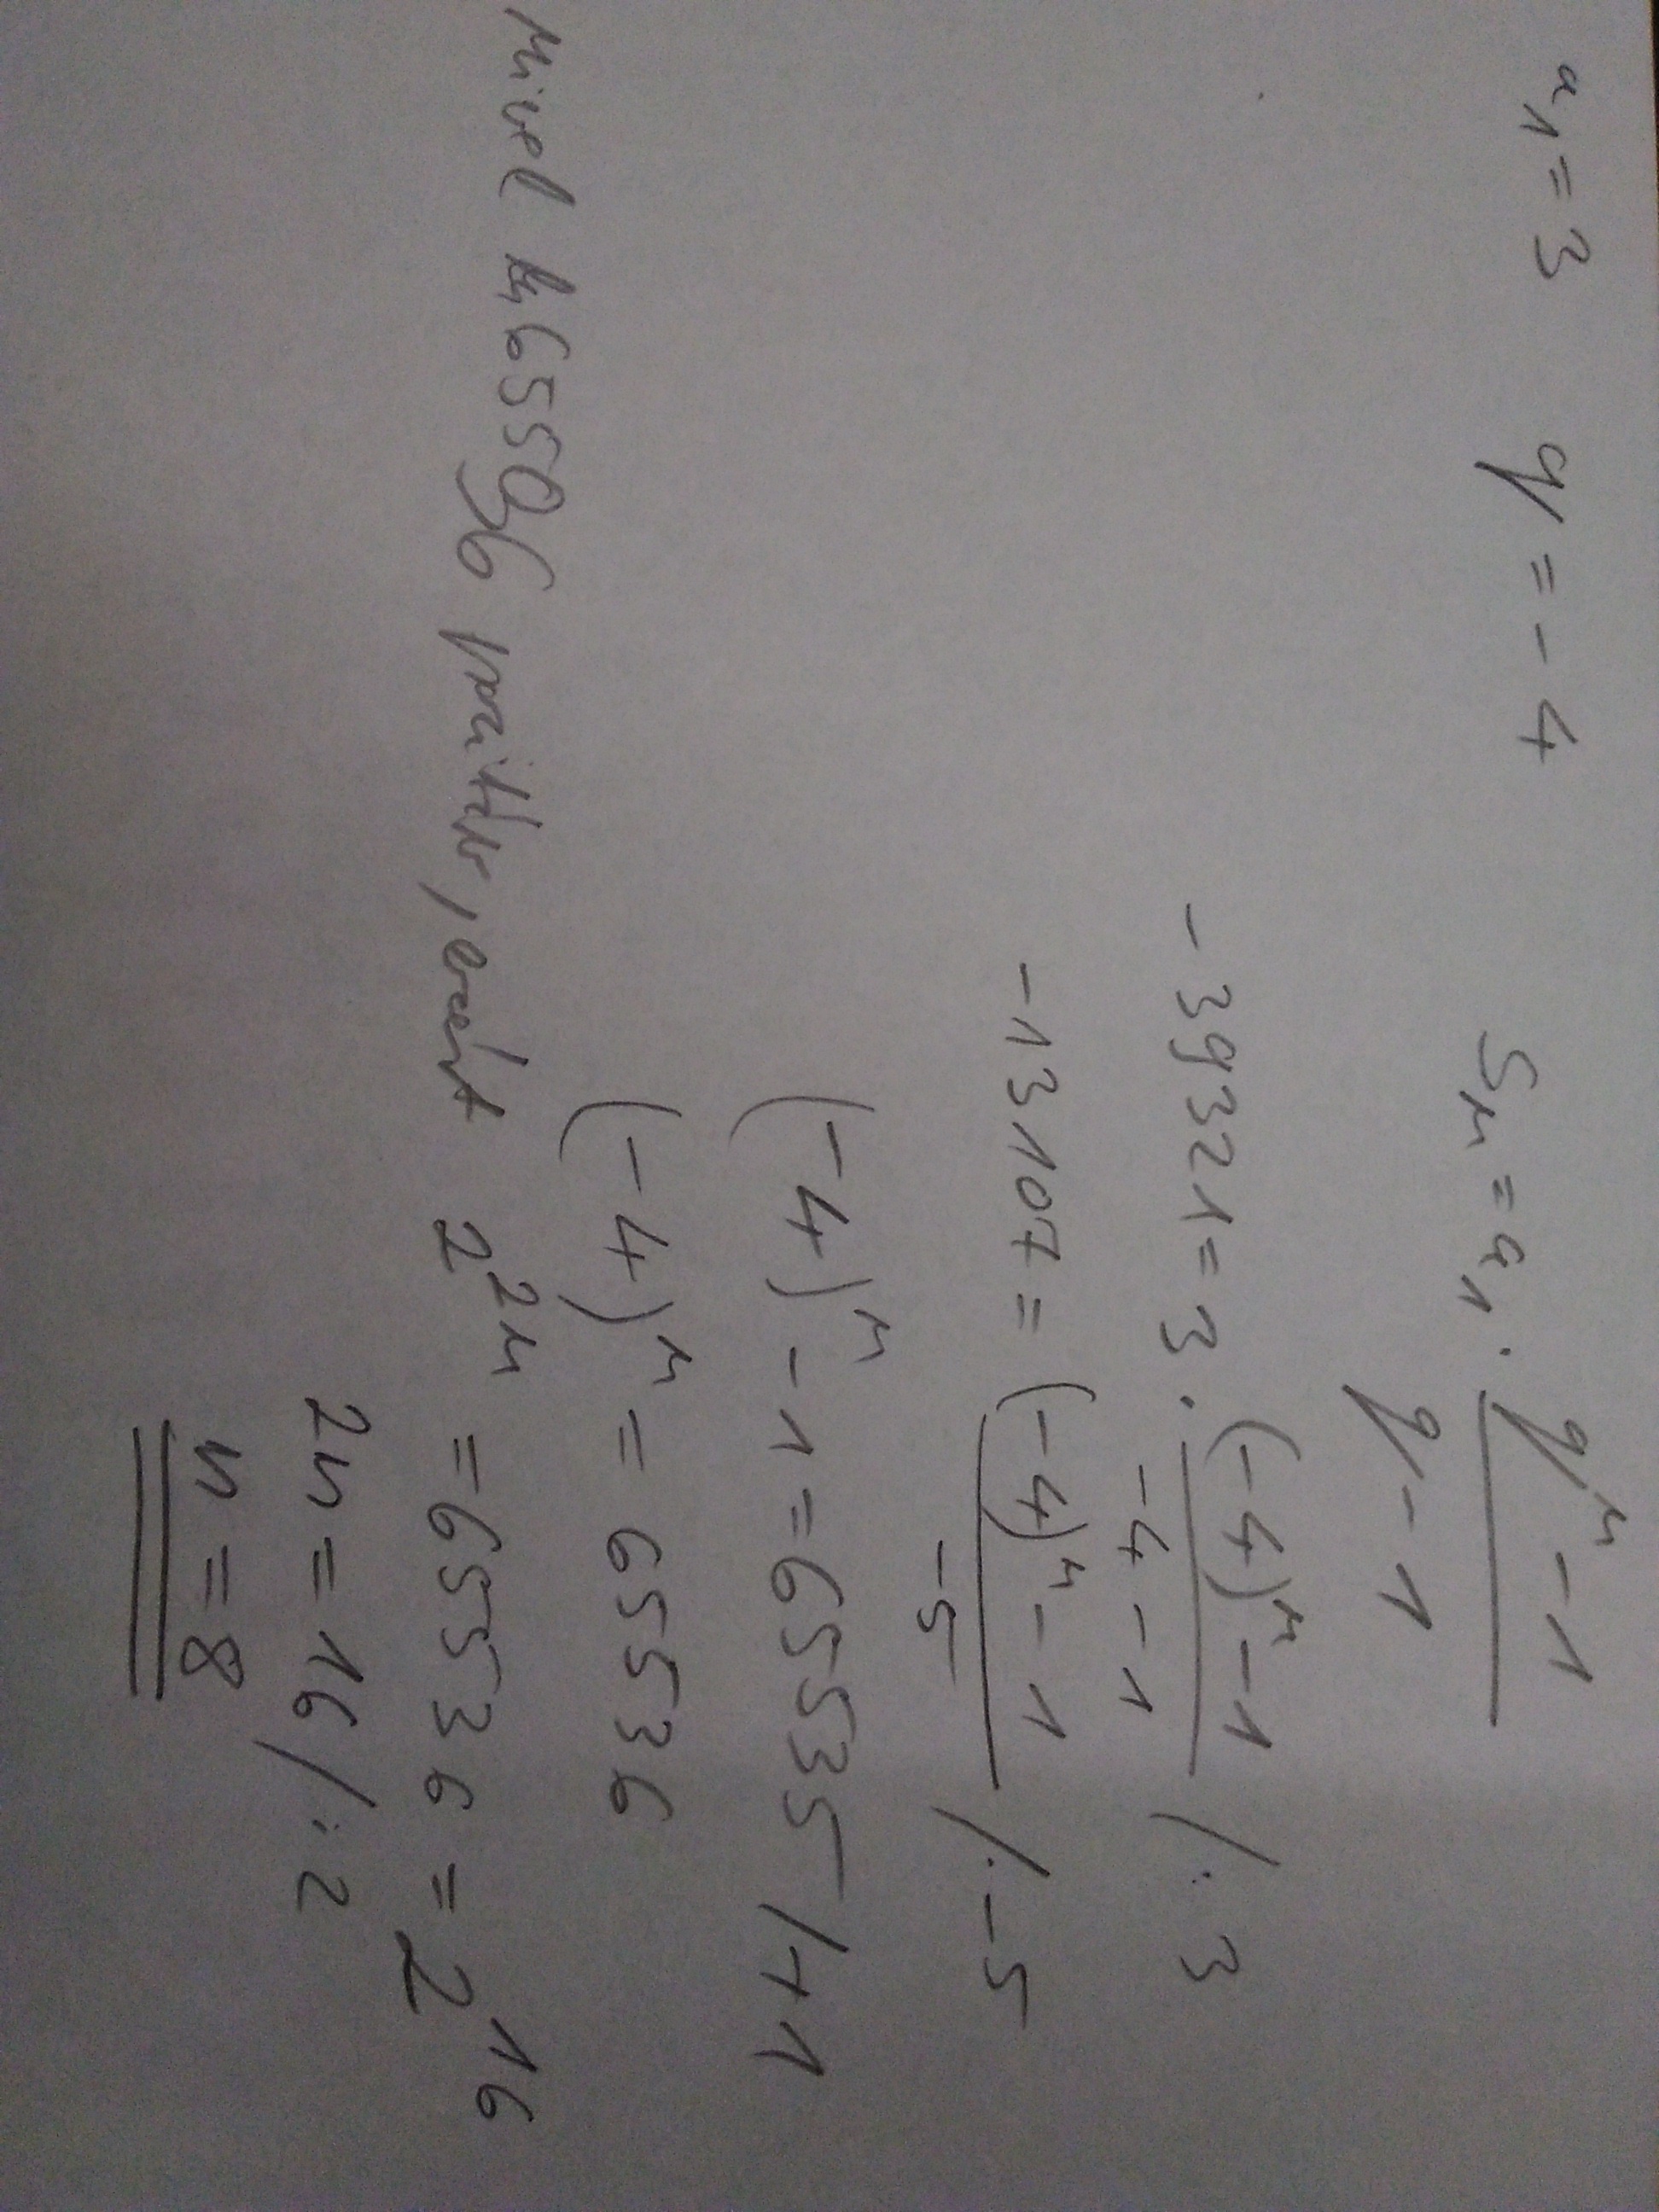 a₁ = 3 q = -4 Sₙ = a₁ · (qⁿ - 1)/(q - 1)
-39321 = 3 · ((-4)ⁿ - 1)/(-4 - 1) /: 3
-13107 = ((-4)ⁿ - 1)/(-5) /· -5
(-4)ⁿ - 1 = 65535 /+1
(-4)ⁿ = 65536
mivel 65536 pozitív, ezért 2²ⁿ = 65536 = 2¹⁶
2n = 16 /: 2
n = 8